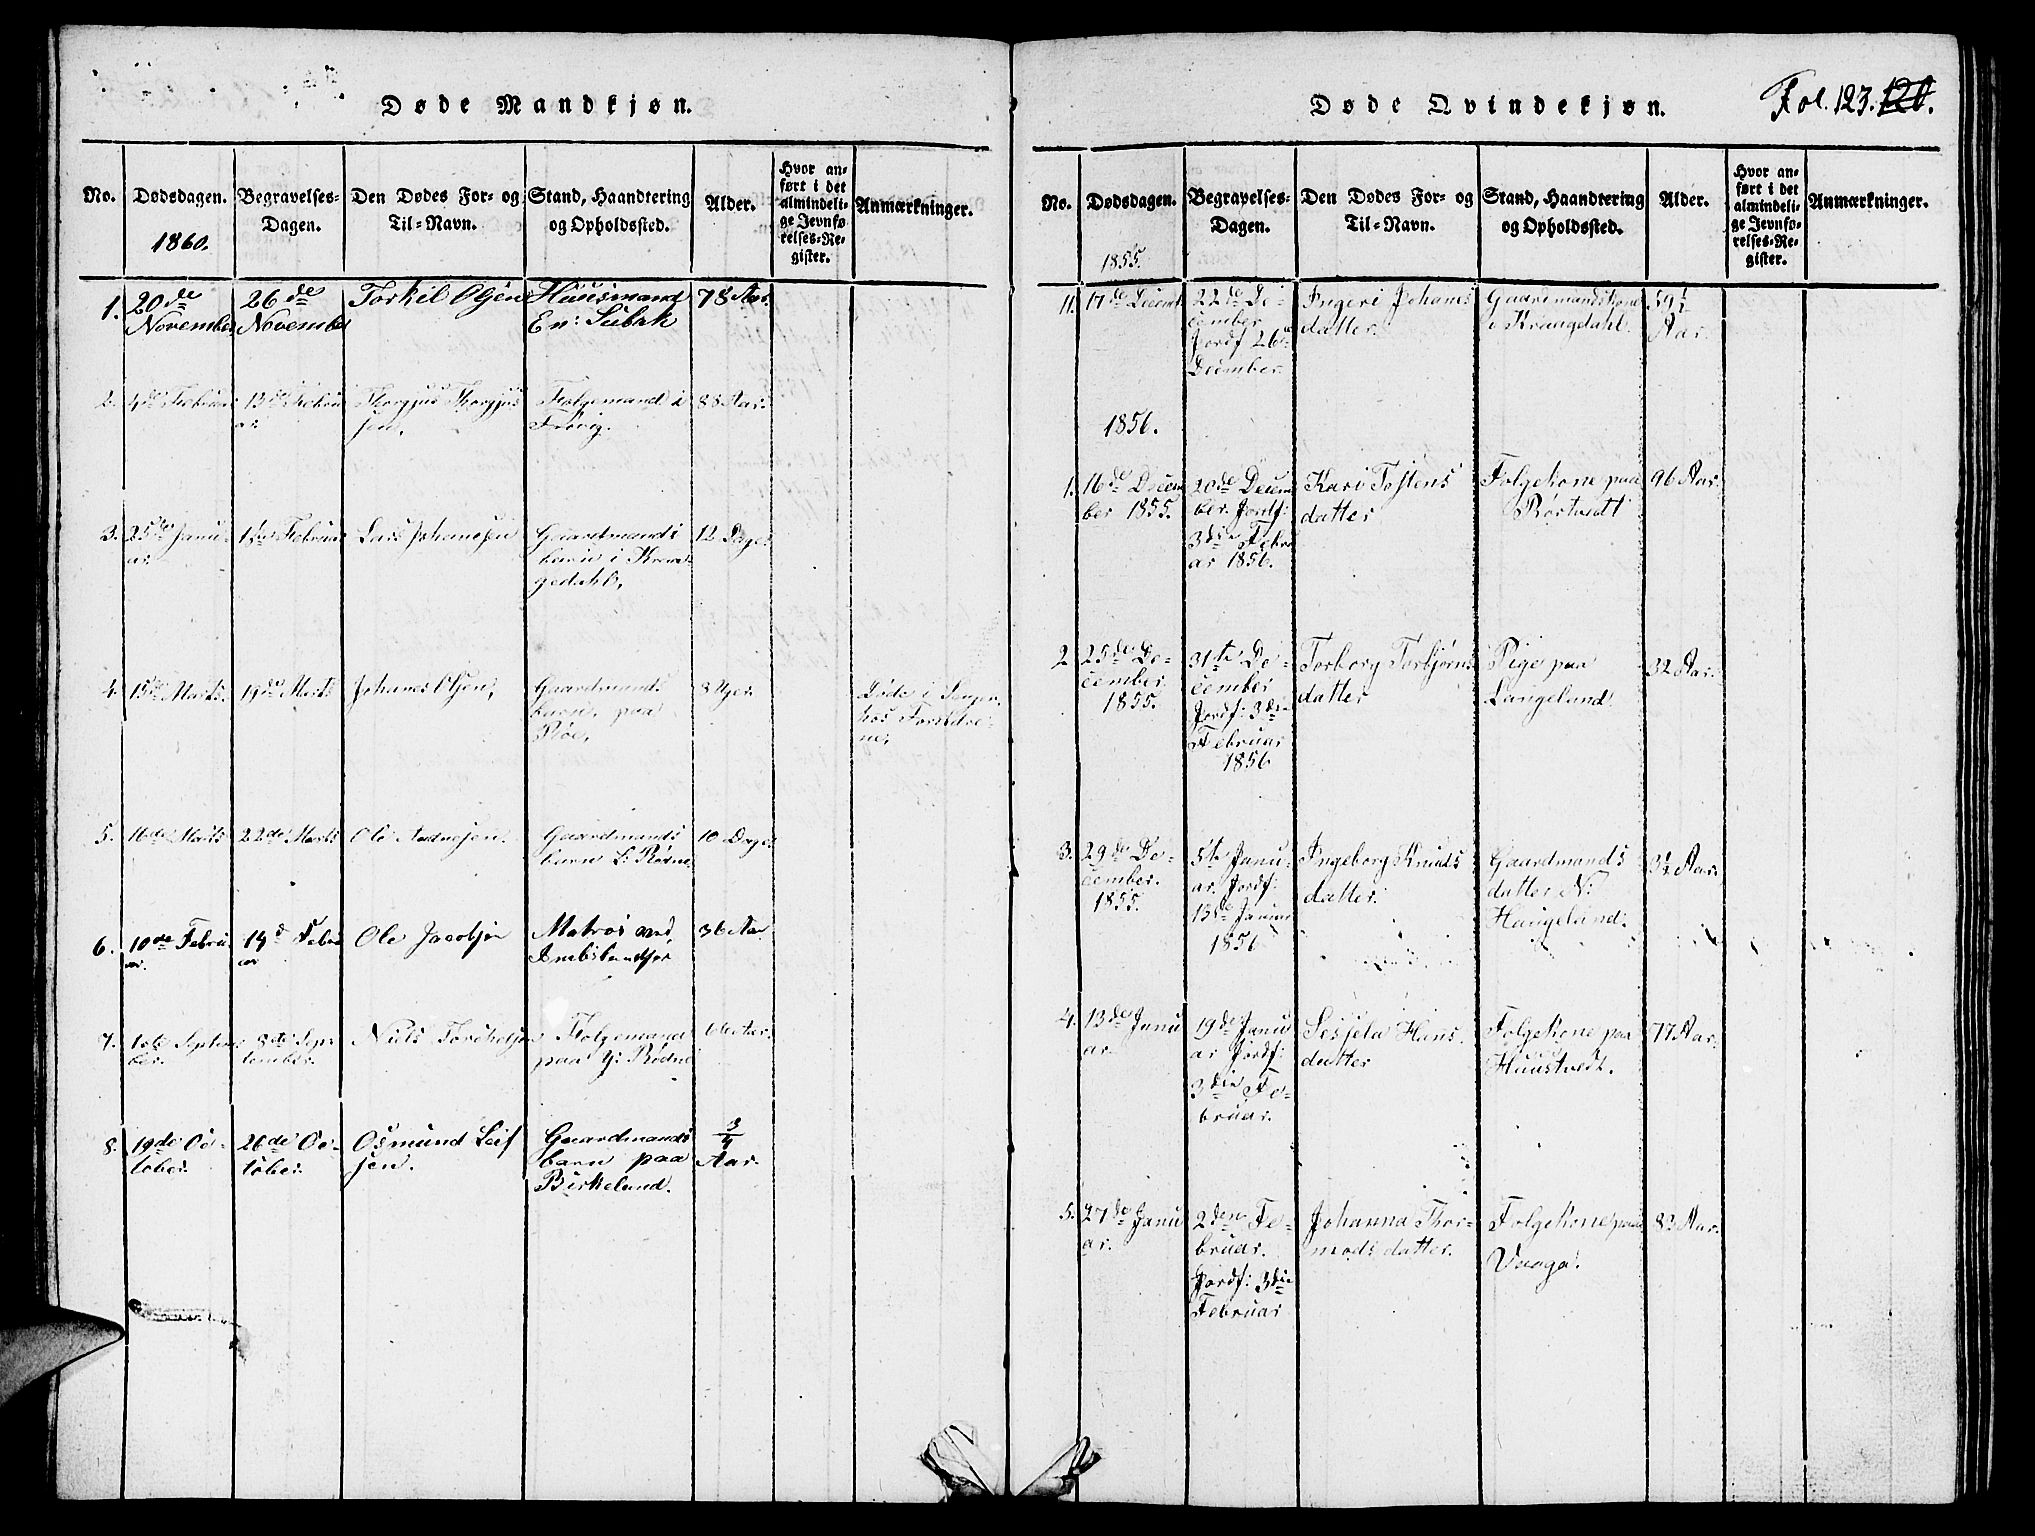 Døde Mandkjøn.
No.
Dødsdagen.
1860.
Begravelses-
Dagen.
Den Dødes For- og
Til-Navn.
Stand, Haandtering
og Opholdssted.
Alder.
Hvor an-
ført i det
almindeli-
ge Jevnfø-
relses-Re-
gister.
Anmærkninger.
1.
20de
November
26de
November
Torkil Olsen
Huusmand
78 Aar.
2.
4de Februar
13de Febru
ar.
Thorgjus Thorgjus
sen.
Folgemand i
88 Aar.
3.
25de Janu-
ar.
1ste Februar
Lars Johanesen
Gaardmands
barn i Kran-
gedahl.
12 Dage.
4.
15de Marts.
19de Marts
Johanes Olsen,
Gaardmands
barn paa
Røe.
8 Uger.
Døde i Sengen
hos Forældre-
ne.
5.
16de Marts
22de Marts
Ole
Gaardmands
barn L: Rødne
10 Dage.
6.
10de Febru-
ar.
19d Febru
ar
Ole Jacobsen
Matros ved
36 Aar.
7.
1ste Septem-
ber.
8de Sep-
tember.
Niels Torkelsen
Folgemand
paa Y: Rødne
8.
19de Oc-
tober.
26de Oc-
tober.
Osmund Leif
sen.
Gaardmands
barn paa
Birkeland.
3/4
Aar.
Døde Qvindekjøn.
Fol. 123. 120.
No.
Dødsdagen.
1855.
Begravelses-
Dagen.
Den Dødes For- og
Til-Navn.
Stand, Haandtering
og Opholdssted.
Alder.
Hvor an-
ført i det
almindeli-
ge Jevnfø-
relses-Re-
gister.
Anmærkninger.
11.
17de Decemb
22de De-
cember
Jordf 26de
December.
Ingeri Johanes
datter.
Gaardmandskone
i Krangedahl.
59½
Aar.
1856.
1.
16de Decem
ber 1855.
20de Decem
ber. Jordf:
3die Febru
ar 1856.
Kari Tostens
datter
Folgekone paa
Rørtvedt
96 Aar.
2
25de De-
cember
1855.
31te De-
cember
Jordf: 3die
Februar
1856
Torborg Torbjørns
datter
Pige paa
Langeland.
32 Aar.
3.
29de De-
cember.
1855.
5te Janu-
ar. Jordf:
13de Januar
1856
Ingeborg Knuds
datter.
Gaardmands
datter N:
Haugeland.
3½ Aar.
4.
13de Janu
ar.
19de Janu
ar Jordf:
3die Fe-
bruar.
Sessela Hans
datter
Folgekone paa
Huustvedt.
77 Aar.
5.
27de Janu
ar.
2den Fe-
bruar.
Jordf: 3die
Februar
Johanna Thor-
mods datter.
Folgekone paa
Vaaga.
Aar.